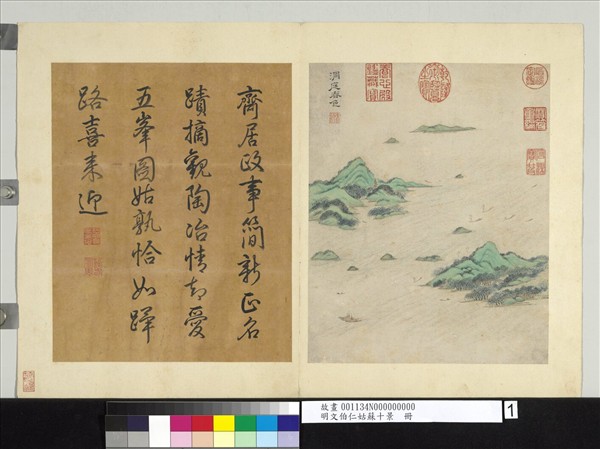 洞庭春色
齋居政事簡新正名
蹟摘觀陶冶情却愛
五峯圖姑孰恰如蹕
路喜來迎
故畫 001134N000000000
明文伯仁姑蘇十景 冊
1